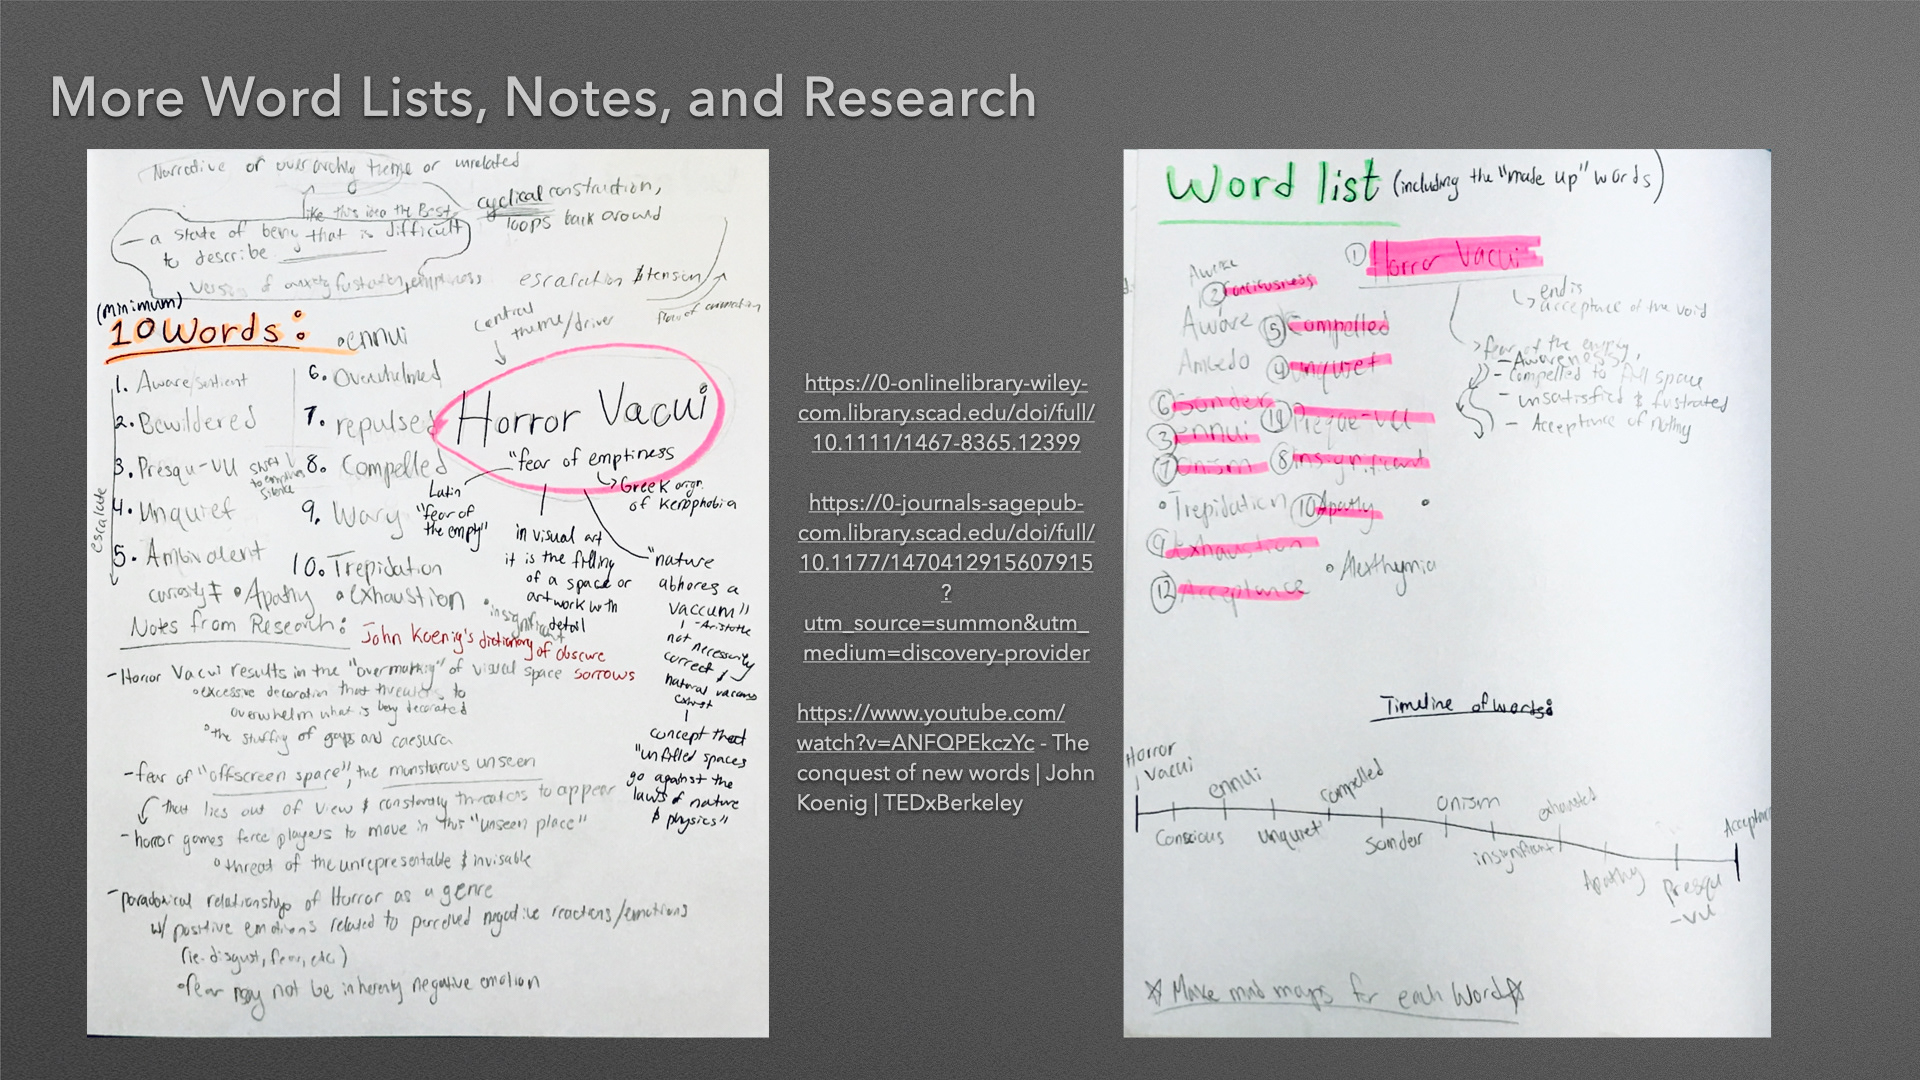 More Word Lists, Notes, and Research
Narrative or overarching theme or unrelated
like this idea the Best
cyclical construction,
loops back around
— a state of being that is difficult
to describe.
escalation & tension
central
theme/driver
(minimum)
10 Words:
• ennui
1. Aware/sentient
2. Bewildered
3. Presqu-vu
4. Unquiet
5. Ambivalent
escalate
6. Overwhelmed
7. repulsed
8. Compelled
9. Wary
10. Trepidation
• Apathy • exhaustion
• insignificant
Horror Vacui
"fear of emptiness
Latin
"fear of
the empty"
Greek orign.
of Kenophobia
in visual art
it is the filling
of a space or
artwork with
detail
"nature
abhores a
vaccum"
- Aristotle
not necessarily
correct &
natural vacuums
concept that
"unfilled spaces
go against the
laws of nature
& physics"
Notes from Research:
John Koenig's dictionary of obscure
sorrows
- Horror Vacui results in the "overmarking" of visual space
• excessive decoration that threatens to
overwhelm what is being decorated
• the stuffing of gaps and caesura
- fear of "offscreen space", the monstarous unseen
that lies out of view & constantly threatens to appear
- horror games force players to move in this "unseen place"
• threat of the unrepresentable & invisable
- paradoxical relationships of Horror as a genre
w/ positive emotions related to perceived negative reactions/emotions
(ie. disgust, fear, etc)
• fear may not be inherently negative emotion
https://0-onlinelibrary-wiley-
com.library.scad.edu/doi/full/
10.1111/1467-8365.12399
https://0-journals-sagepub-
com.library.scad.edu/doi/full/
10.1177/1470412915607915
?
utm_source=summon&utm_
medium=discovery-provider
https://www.youtube.com/
watch?v=ANFQPEkczYc - The
conquest of new words | John
Koenig | TEDxBerkeley
Word list (including the "made up" words)
① Horror Vacui
end is
acceptance of the void
fear of the empty,
- Awareness,
- Compelled to fill space
- unsatisfied & frustrated
- Acceptance of nothing
② Consciousness
Aware
⑤ Compelled
④ Unquiet
⑥ Sonder
③ ennui
⑦ Onism
⑧ insignificant
• Trepidation
⑩ Apathy
⑨ Exhaustion
• Alexthymia
⑫ Acceptance
Timeline of words:
Horror
Vacui
Conscious
ennui
unquiet
compelled
Sonder
onism
insignificant
exhausted
Apathy
Presqu
-vu
Make mind maps for each Word